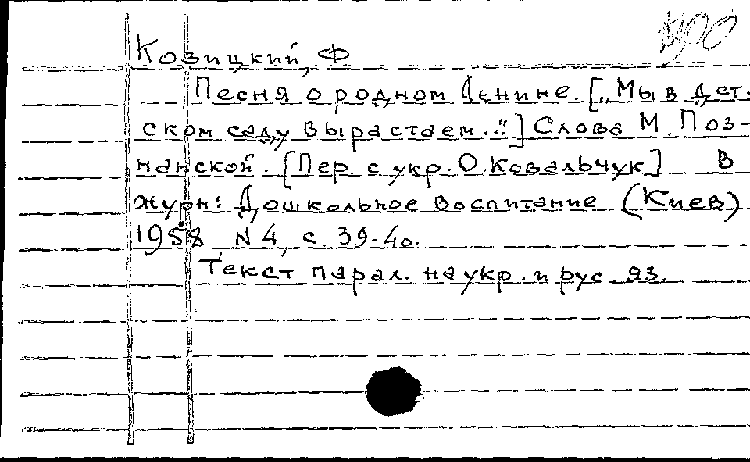 Козицкий, Ф
Песня о родном Ленине. [„Мы в дет.
ском саду вырастаем.."] Слова М. Поз-
нанской. [Пер. с укр. О. Ковальчук] В
журн: Дошкольное воспитание (Киев)
1958 N 4, с. 39-40.
Текст парал. на укр. и рус яз.